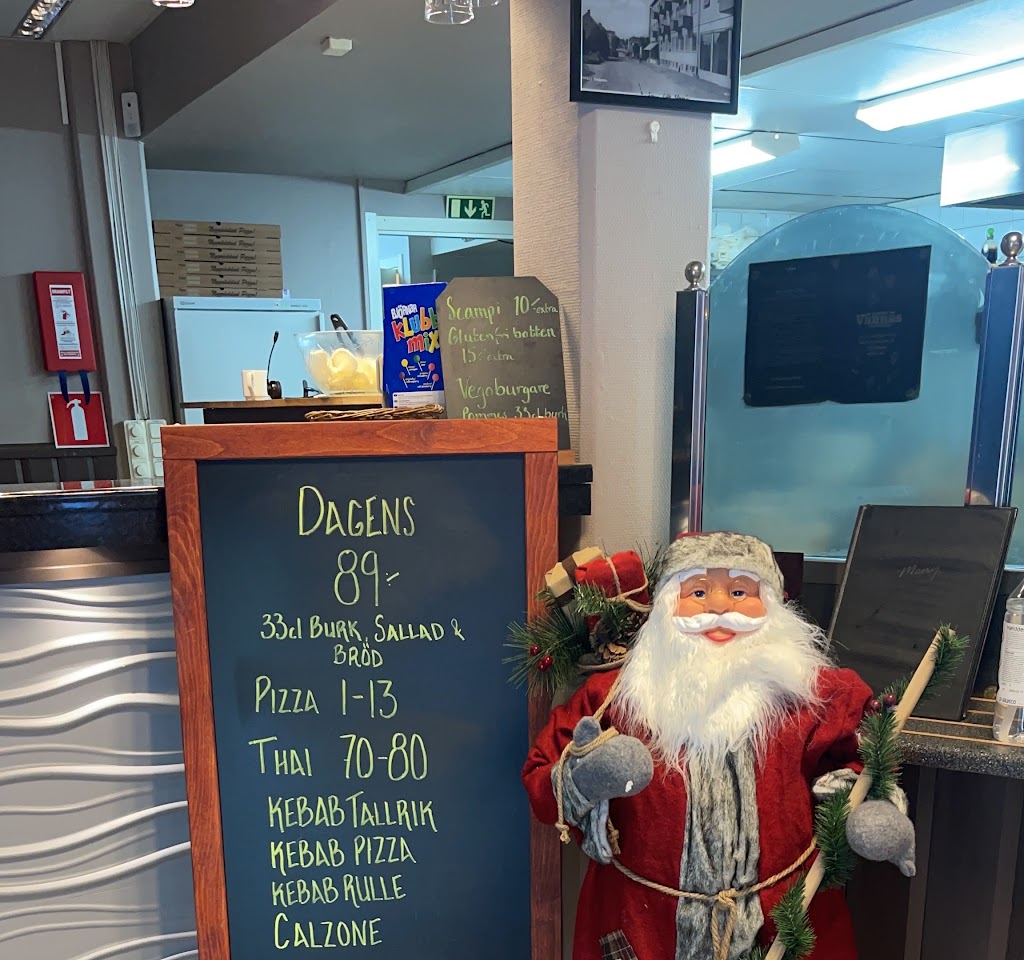 BJÖRNAR
KLUBB
MIX
Scampi 10:- extra
Glutenfri botten
15:- extra
Vegoburgare
Pommes, 33cl burk
DAGENS
89:-
33cl BURK, SALLAD &
BRÖD
PIZZA 1-13
THAI 70-80
KEBAB TALLRIK
KEBAB PIZZA
KEBAB RULLE
CALZONE
Meny